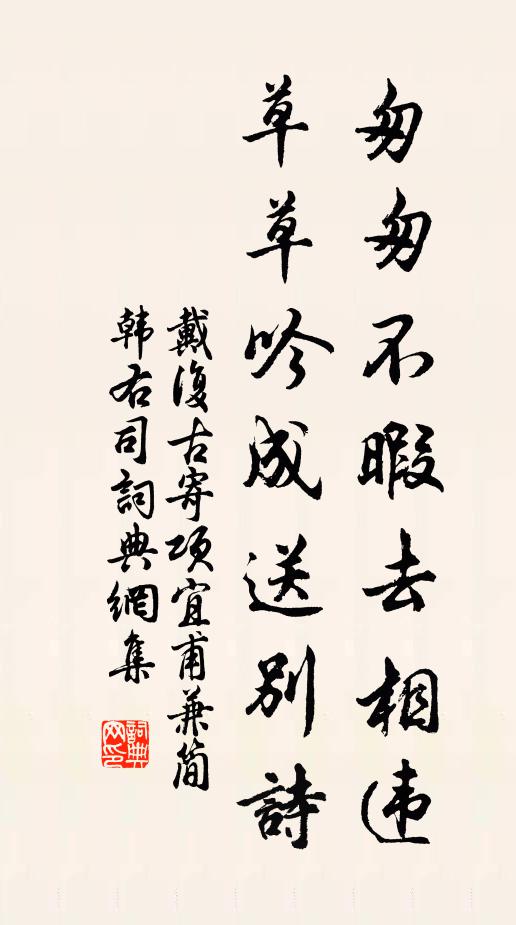 匆匆不暇去相违
草草吟成送别詩
戴復古寄項宜甫兼简
韩右司詞典網集
詞典网印